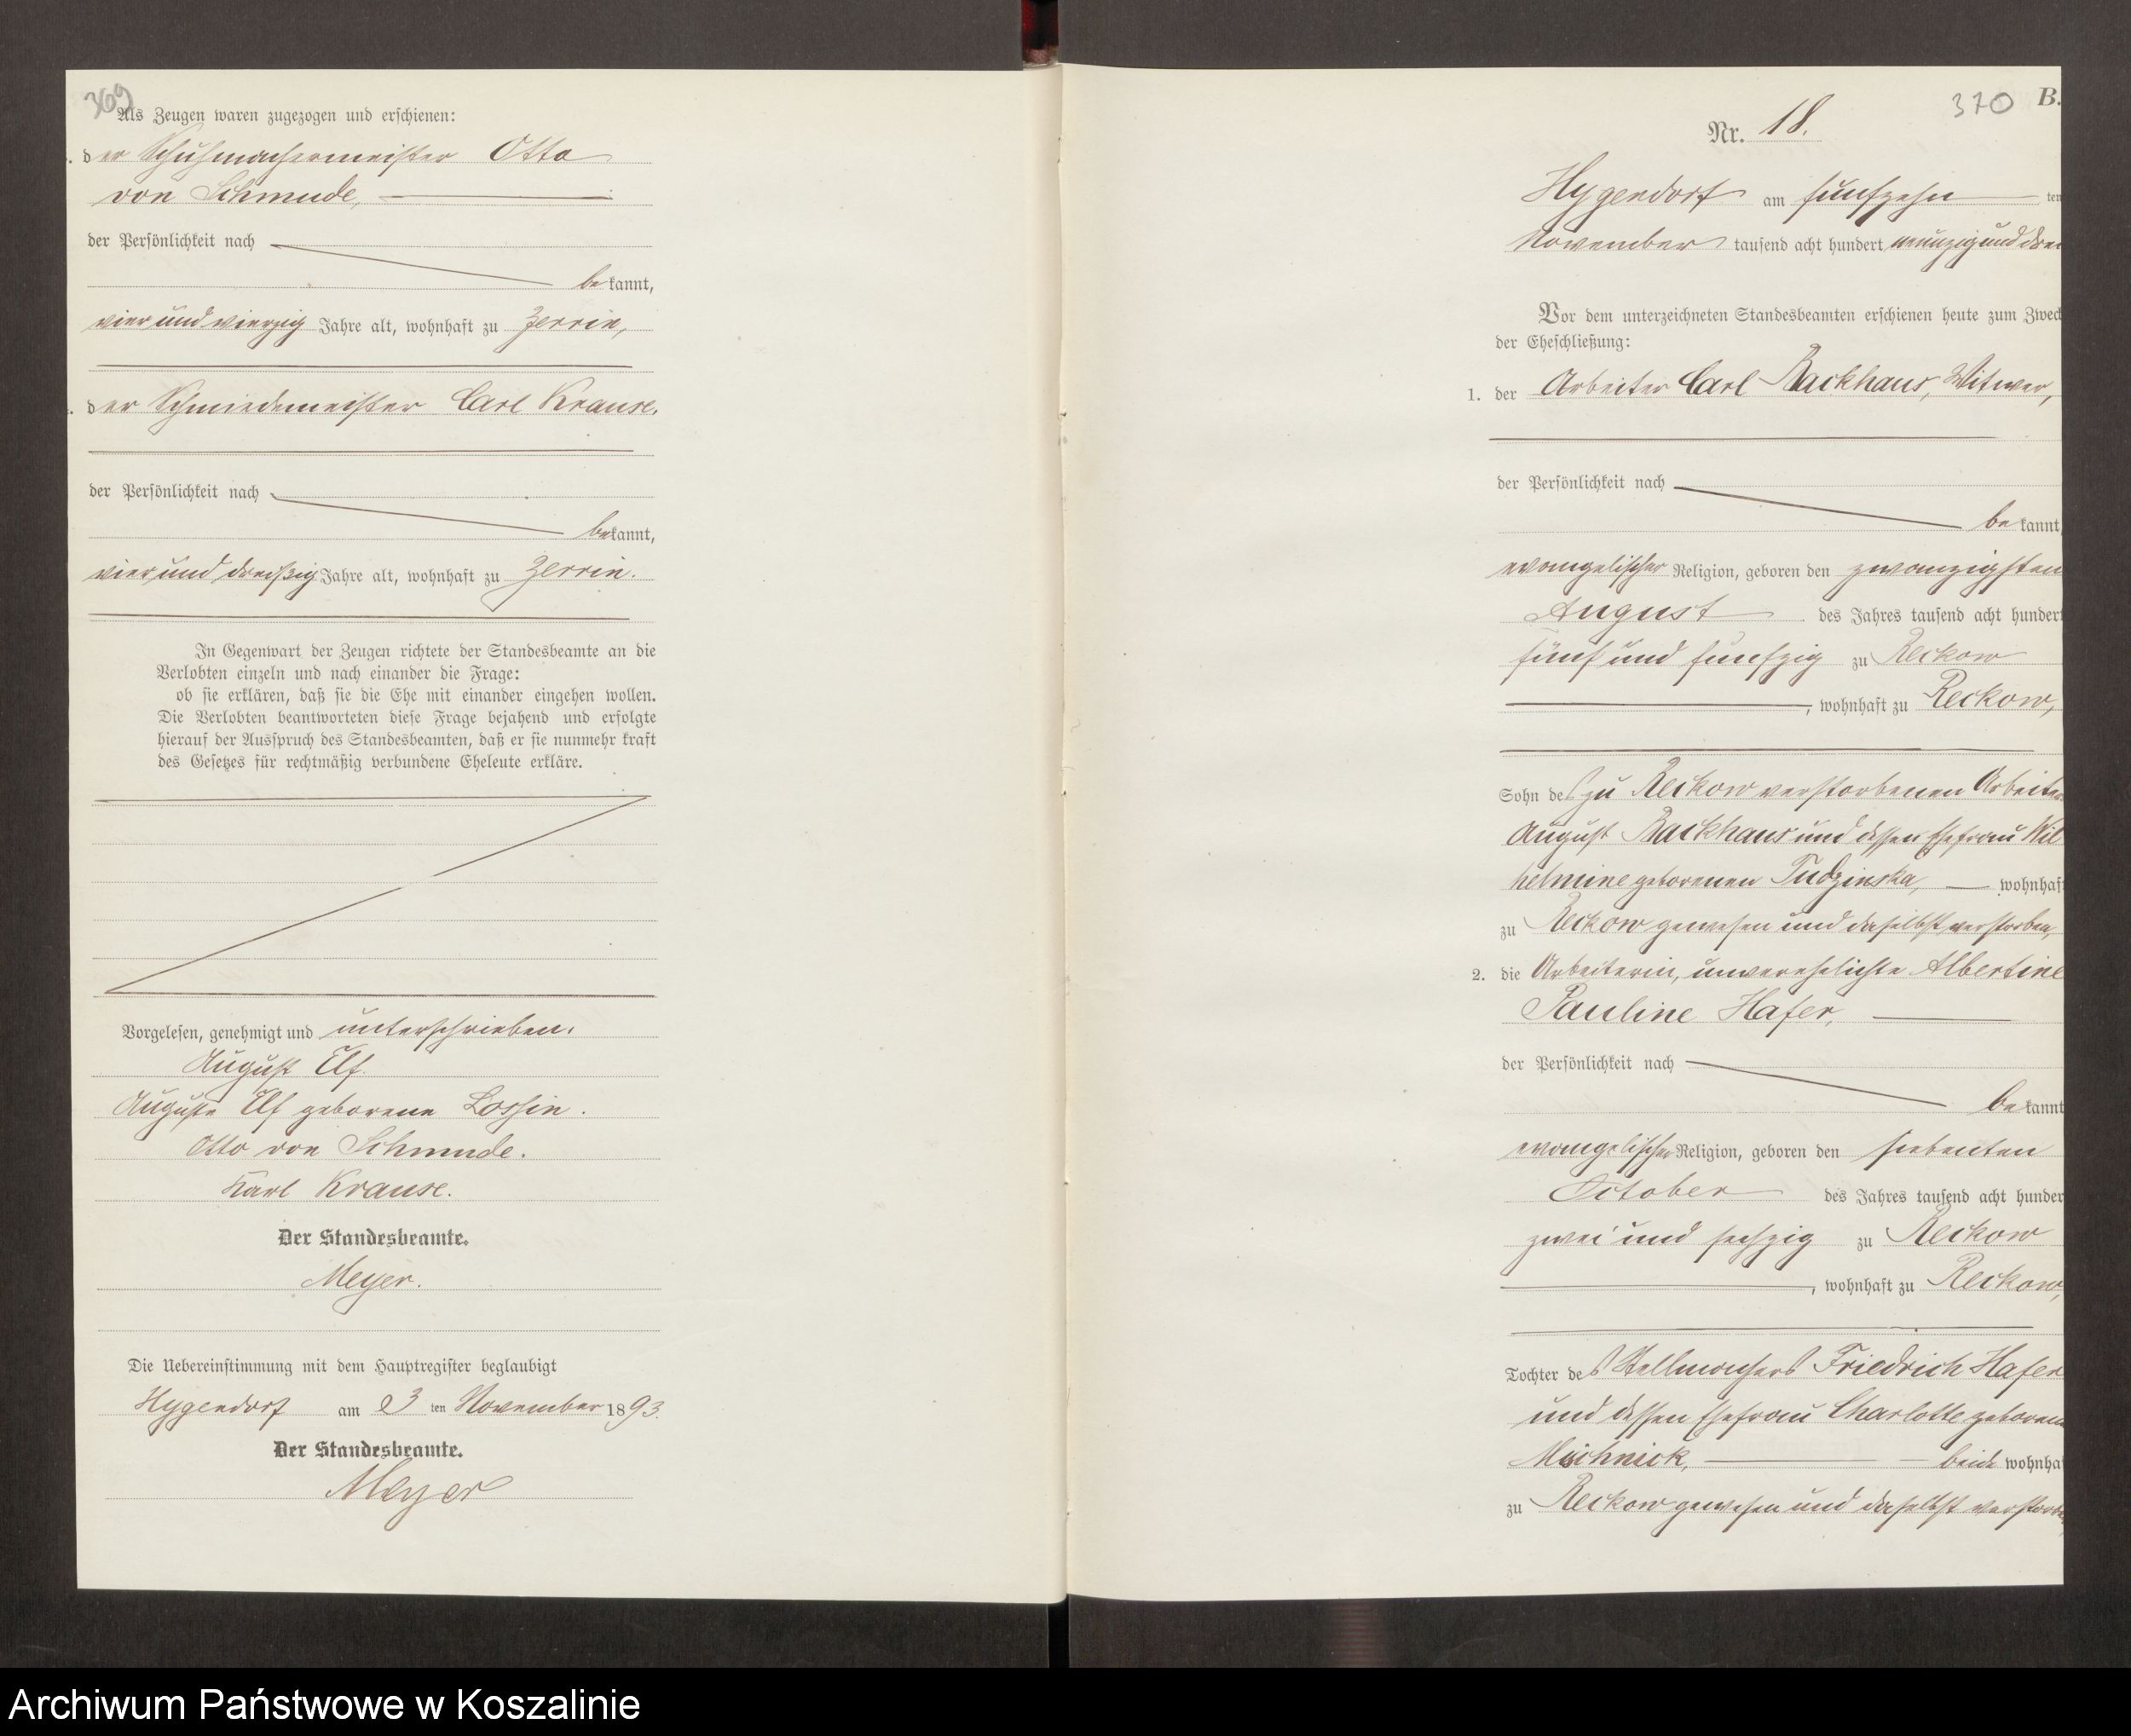 309
Als Zeugen waren zugezogen und erschienen:
der Schuhmachermeister Otto
von Schmude,
der Persönlichkeit nach
bekannt,
vier und vierzig Jahre alt, wohnhaft zu Zerrin,
der Schmiedemeister Carl Krause.
der Persönlichkeit nach
bekannt,
vier und dreißig Jahre alt, wohnhaft zu Zerrin.
In Gegenwart der Zeugen richtete der Standesbeamte an die
Verlobten einzeln und nach einander die Frage:
ob sie erklären, daß sie die Ehe mit einander eingehen wollen.
Die Verlobten beantworteten diese Frage bejahend und erfolgte
hierauf der Ausspruch des Standesbeamten, daß er sie nunmehr kraft
des Gesetzes für rechtmäßig verbundene Eheleute erkläre.
Vorgelesen, genehmigt und unterschrieben.
August Elf.
Auguste Elf geborene Lossin.
Otto von Schmude.
Karl Krause.
Der Standesbeamte.
Meyer.
Die Uebereinstimmung mit dem Hauptregister beglaubigt
Hygendorf am 3 ten November 1893.
Der Standesbeamte.
Meyer
370 B.
Nr. 18.
Hygendorf am fünfzehn ten
November tausend acht hundert neunzig und drei
Vor dem unterzeichneten Standesbeamten erschienen heute zum Zweck
der Eheschließung:
1. der Arbeiter Carl Backhaus, Witwer,
der Persönlichkeit nach
bekannt,
evangelischer Religion, geboren den zwanzigsten
August des Jahres tausend acht hundert
fünf und fünfzig zu Reckow
, wohnhaft zu Reckow,
Sohn des zu Reckow verstorbenen Arbeiters
August Backhaus und dessen Ehefrau Wil
helmine geborenen Tudzinska, wohnhaft
zu Reckow gewesen und daselbst verstorben,
2. die Arbeiterin, unverehelichte Albertine
Pauline Hafer,
der Persönlichkeit nach
bekannt
evangelischer Religion, geboren den siebenten
October des Jahres tausend acht hundert
zwei und sechzig zu Reckow
, wohnhaft zu Reckow,
Tochter des Stellmachers Friedrich Hafer
und dessen Ehefrau Charlotte geborene
Mischnick, beide wohnhaft
zu Reckow gewesen und daselbst verstorben
Archiwum Państwowe w Koszalinie